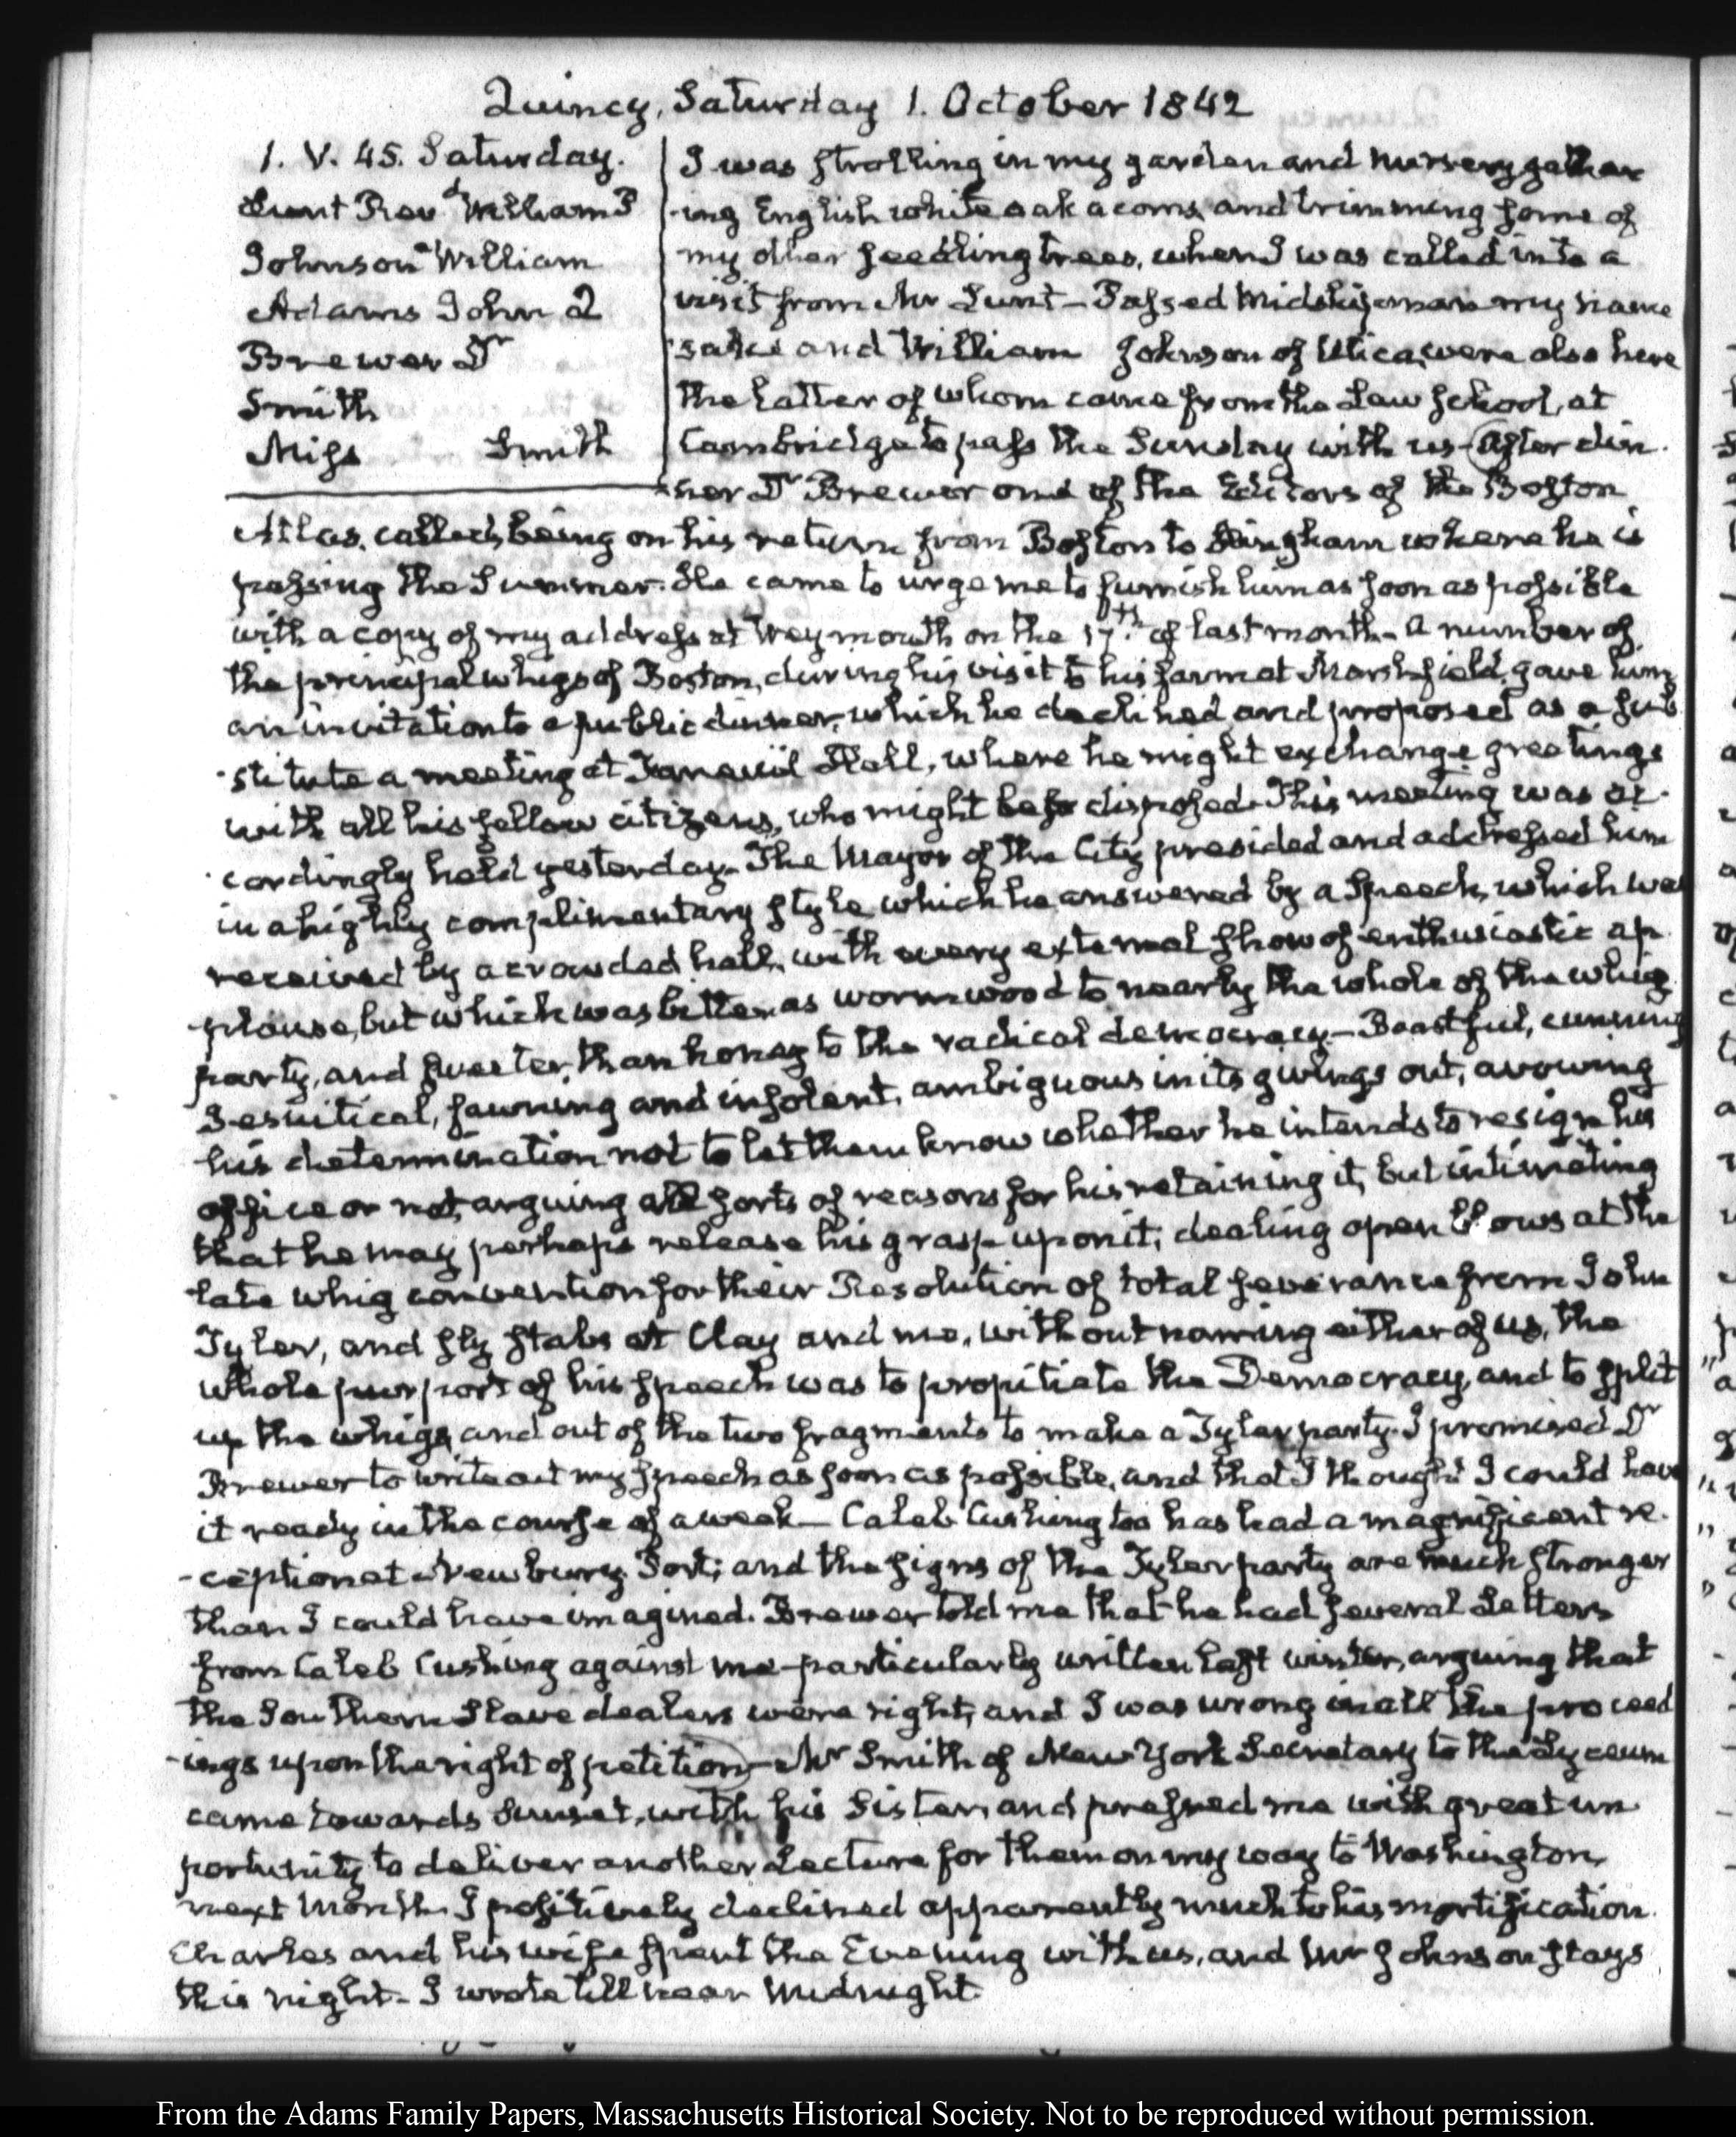 Quincy, Saturday 1. October 1842
1. V. 45. Saturday.
Lunt Revd William P
Johnson William
Adams John Q
Brewer Dr
Smith
Miss Smith
I was strolling in my garden and nursery gather
-ing English white oak acorns, and trimming some of
my other seedling trees, when I was called in to a
visit from Mr Lunt — Passed Midshipman my name
sake and William Johnson of Utica, were also here
the latter of whom came from the Law School, at
Cambridge to pass the Sunday with us — After din
-ner Dr Brewer one of the Editors of the Boston
Atlas, called, being on his return from Boston to Hingham where he is
passing the Summer. He came to urge me to furnish him as soon as possible
with a copy of my address at Weymouth on the 17th. of last month — A number of
the principal whigs of Boston, during his visit to his farm at Marshfield, gave him
an invitation to a public dinner, which he declined and proposed as a sub
-stitute a meeting at Faneuil Hall, where he might exchange greetings
with all his fellow citizens, who might be so disposed. This meeting was ac
-cordingly held yesterday. The Mayor of the City presided and addressed him
in a highly complimentary style which he answered by a Speech, which was
received by a crowded hall, with every external show of enthusiastic ap
-plause, but which was bitter as wormwood to nearly the whole of the whig
party, and sweeter than honey to the radical democracy — Boastful, cunning
Jesuitical, fawning and insolent, ambiguous in its givings out, avowing
his determination not to let them know whether he intends to resign his
office or not, arguing all sorts of reasons for his retaining it, but intimating
that he may perhaps release his grasp upon it; dealing open blows at the
late whig convention for their Resolution of total severance from John
Tyler, and sly stabs at Clay and me, without naming either of us, the
whole purport of his speech was to propitiate the Democracy, and to split
up the whigs, and out of the two fragments to make a Tyler party. I promised Dr
Brewer to write out my speech as soon as possible, and that I thought I could have
it ready in the course of a week — Caleb Cushing too has had a magnificent re
-ception at Newbury Port; and the signs of the Tyler party are much stronger
than I could have imagined. Brewer told me that he had several Letters
from Caleb Cushing against me particularly written last winter, arguing that
the Southern Slave dealers were right, and I was wrong in all the proceed
-ings upon the right of petition — Mr Smith of New York Secretary to the Lyceum
came towards Sunset, with his Sister, and pressed me with great im
portunity to deliver another Lecture for them on my way to Washington,
next Month. I positively declined apparently much to his mortification.
Charles and his wife spent the Evening with us, and Mr Johnson stays
this night — I wrote till near Midnight.
From the Adams Family Papers, Massachusetts Historical Society. Not to be reproduced without permission.